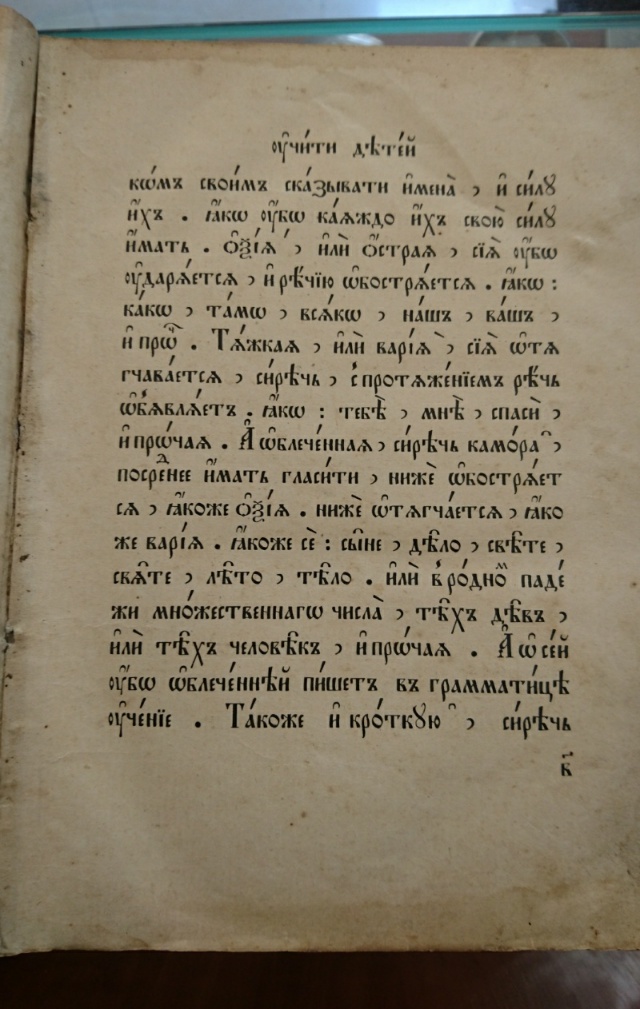 ᲂу҆чи́ти дѣте́й
кѡ́мъ свои́мъ ска́зывати и҆мена̀ , и҆ си́лꙋ
и҆́хъ . ꙗ҆́кѡ ᲂу҆́бѡ ка́ѧждо и҆́хъ свою̀ си́лꙋ
и҆́мать . ѻ҆ѯі́ѧ ́ , и҆лѝ ѻ҆́страѧ , сїѧ̀ ᲂу҆́бѡ
ᲂу҆дарѧ́етсѧ , и҆ рѣ́чїю ѡ҆бострѧ́етсѧ . ꙗ҆́кѡ :
ка́кѡ , та́мѡ , всѧ́кѡ , на́шъ , ва́шъ ,
и҆ прѡ́ⷱ҇ . Тѧ́жкаѧ , и҆лѝ варі́ѧ ̀ , сїѧ̀ ѡ҆тѧ
гчава́етсѧ , си́рѣчь , с̾протѧже́нїемъ рѣ́чь
ѡ҆б̾ѧвлѧ́етъ . ꙗ҆́кѡ : тебѣ̀ , мнѣ̀ , спасѝ ,
и҆ прѡ́чаѧ . А҆ ѡ҆блече́ннаѧ , си́рѣчь камо́ра ̑ ,
посре́дⷣнее и҆́мать гласи́ти , нижѐ ѡ҆бострѧ́ет
сѧ , ꙗ҆́коже ѻ҆ѯі́ѧ . нижѐ ѡ҆тѧгча́етсѧ , ꙗ҆́ко
же варі́ѧ . ꙗ҆́коже сѐ : сы̑не , дѣ̑ло , свѣ̑те ,
свѧ̑те , лѣ̑то , тѣ̑ло . и҆лѝ в̾ро́дноⷨ паде́
жи мно́жественнагѡ числа̀ , тѣ̑хъ дѣ̑въ ,
и҆лѝ тѣ̑хъ человѣ̑къ , и҆ прѡ́чаѧ . А҆ ѡ҆ се́й
ᲂу҆́бѡ ѡ҆блече́ннѣй пи́шетъ въ граммати́цѣ
ᲂу҆че́нїе . Та́коже и҆ кро́ткꙋю ҆ , си́рѣчь
в҃